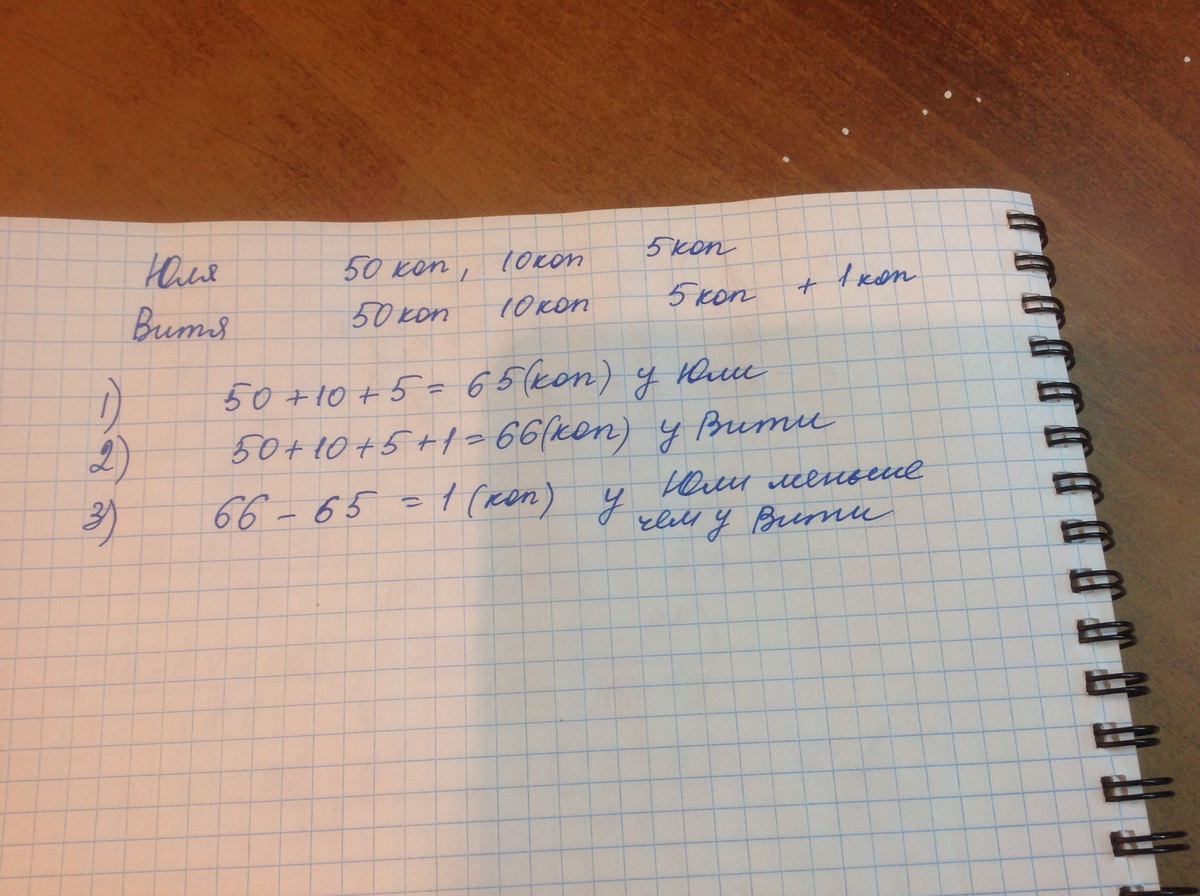 Юля 50 коп, 10 коп 5 коп
Витя 50 коп 10 коп 5 коп + 1 коп
1) 50 + 10 + 5 = 65 (коп) у Юли
2) 50 + 10 + 5 + 1 = 66 (коп) у Вити
3) 66 - 65 = 1 (коп) у Юли меньше
чем у Вити